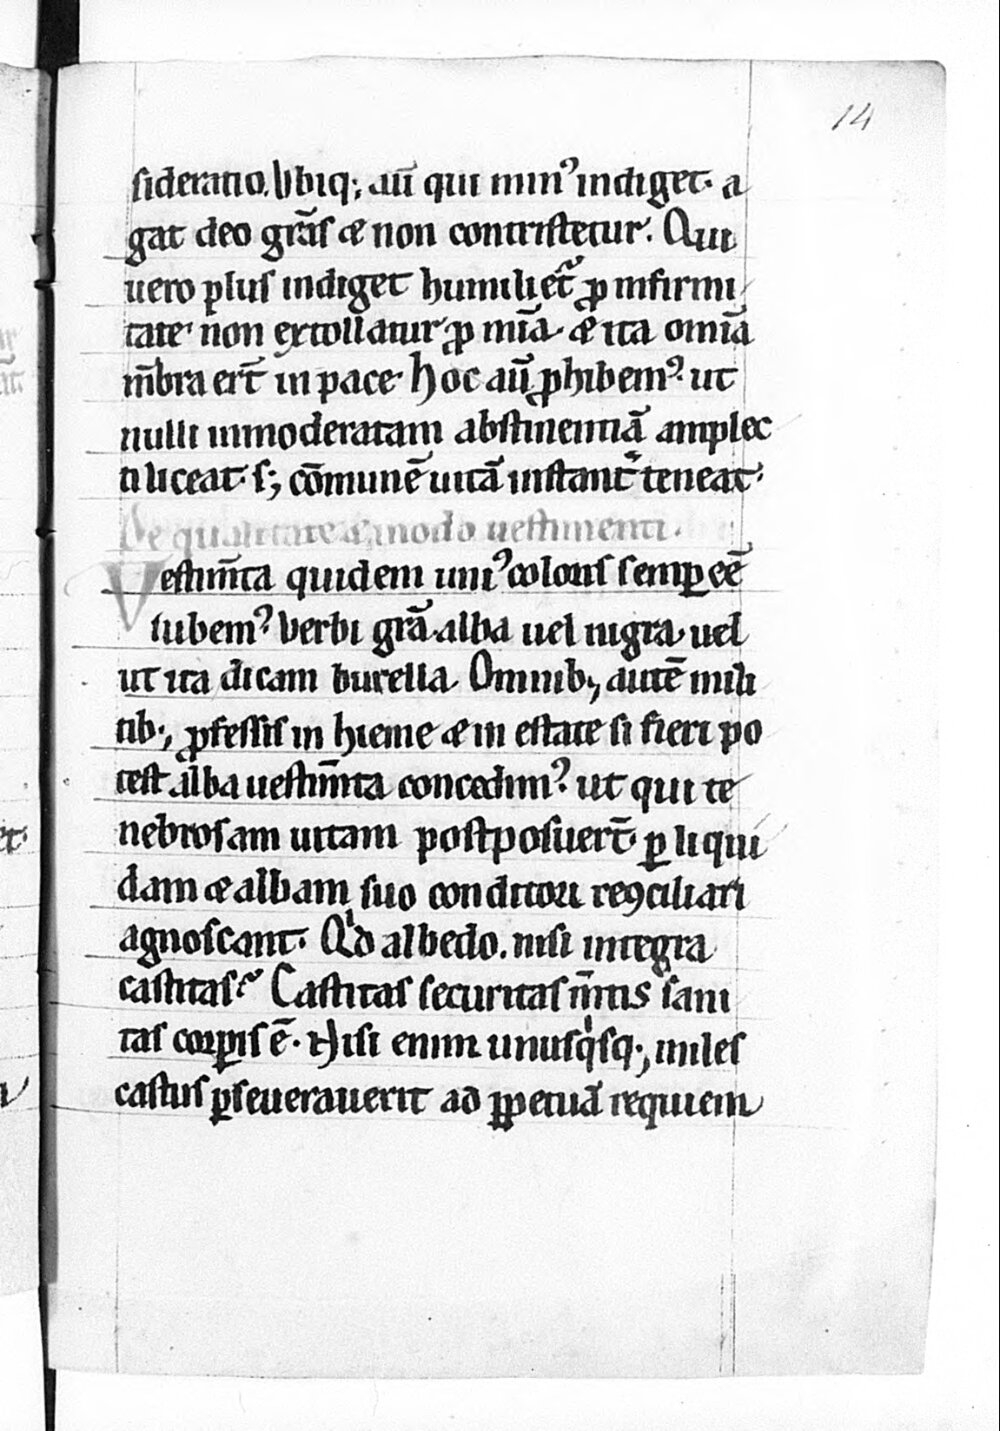 14
sideratio. Vbiq; aū qui min⁹ indiget. a
gat deo gr̄as & non contristetur. Qui
uero plus indiget humiliet᷑ ꝓ infirmi
tate. non extollatur ꝓ mīa. & ita omīa
m̄bra er̄t in pace. Hoc aū ꝓhibem⁹. ut
nulli inmoderatam abstinentiā amplec
ti liceat. s; cōmunē uitā instant᷑ teneat.
De qualitate & modo uestimenti.
Vestim̄ta quidem uni⁹ coloris semꝑ eē
iubem⁹. verbi gr̄a. alba uel nigra. uel
ut ita dicam burella. Omnib; autē mili
tib; ꝓfessis in hieme & in estate si fieri po
test alba uestim̄ta concedim⁹. ut qui te
nebrosam uitam postposuer̄t ꝑ liqui
dam & albam suo conditori reꝯciliari
agnoscant. Qͥd albedo. nisi integra
castitas? Castitas securitas m̄tis sani
tas corꝑis ē. Nisi enim unusqͥsq; miles
castus ꝑseuerauerit ad ꝑpetuā requiem